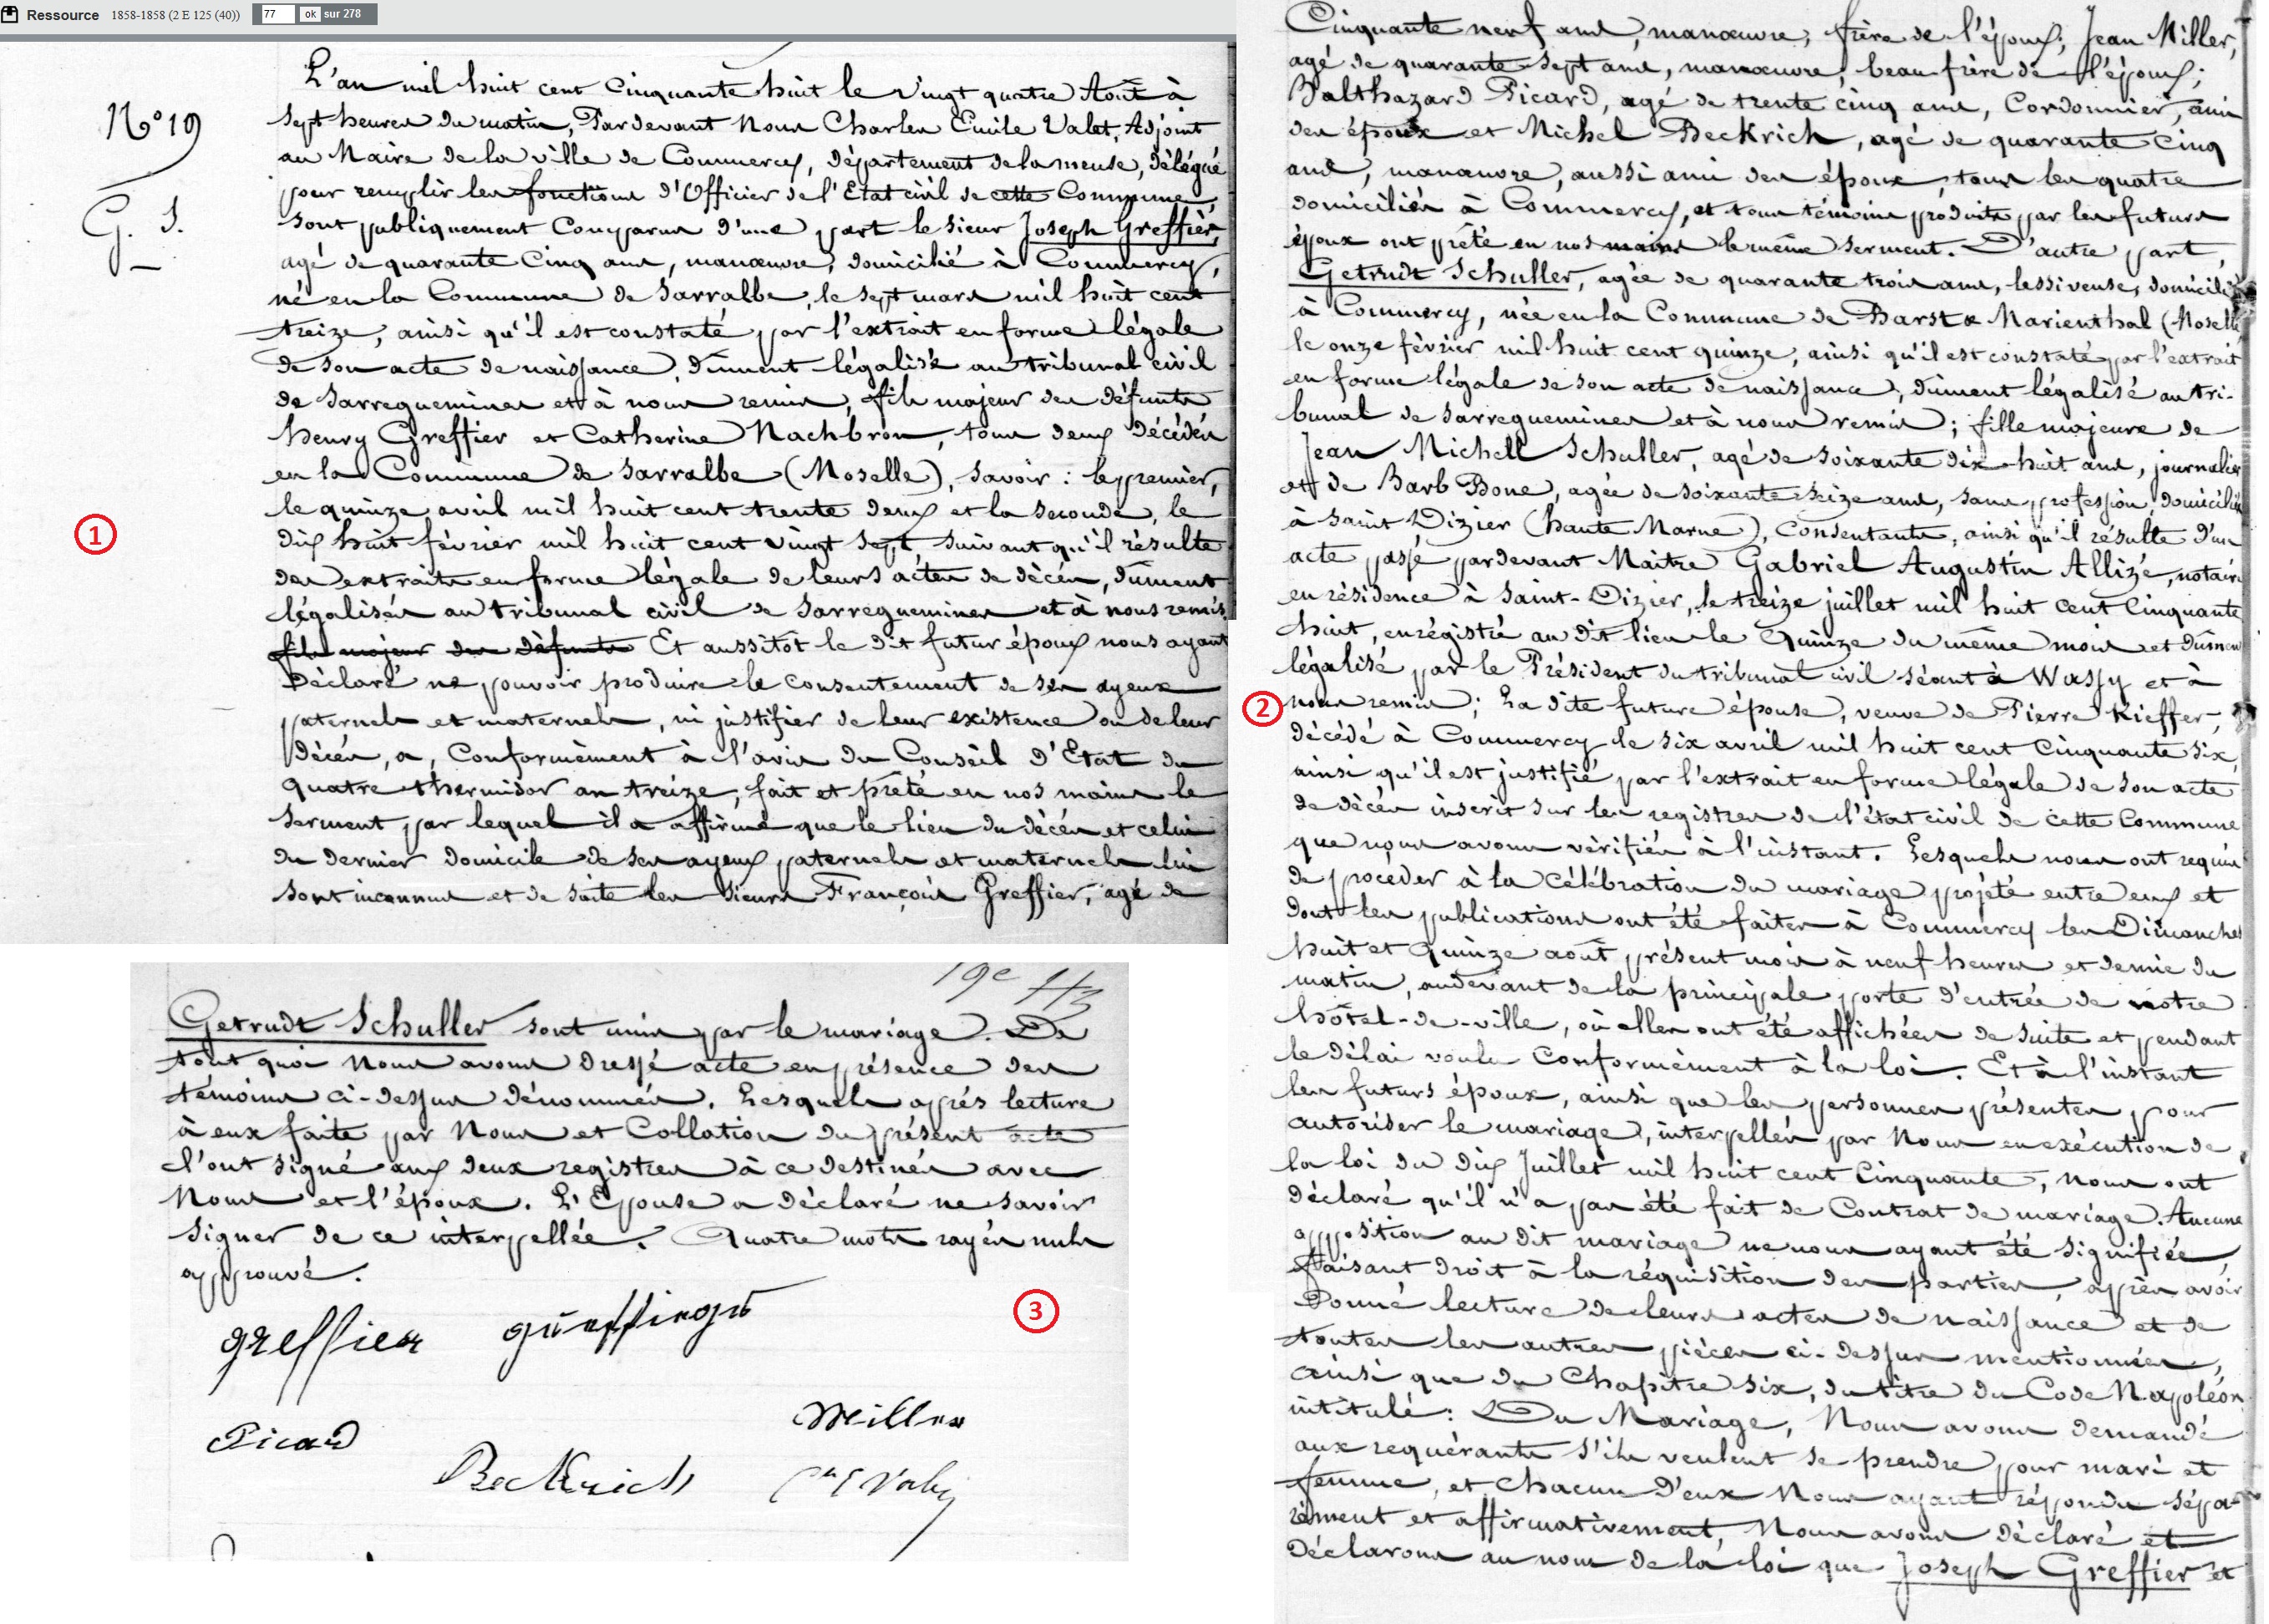 Ressource 1858-1858 (2 E 125 (40)) 77 ok sur 278
N° 19
G. S.
1
L'an mil huit cent Cinquante huit le vingt quatre Août à
Sept heures du matin, Pardevant Nous Charles Emile Valet, Adjoint
au Maire de la ville de Commercy, département de la meuse, délégué
pour remplir les fonctions d'Officier de l'Etat civil de cette Commune,
sont publiquement Comparus d'une part le sieur Joseph Greffier,
agé de quarante Cinq ans, manœuvre, domicilié à Commercy,
né en la Commune de Sarralbe, le sept mars mil huit cent
treize, ainsi qu'il est constaté par l'extrait en forme légale
de son acte de naissance, dûment légalisé au tribunal civil
de Sarreguemines et à nous remis, fils majeur des défunts
henry Greffier et Catherine Nachbron, tous deux décédés
en la Commune de Sarralbe (Moselle), savoir : le premier,
le quinze avril mil huit cent trente deux et la seconde, le
dix huit février mil huit cent vingt sept, suivant qu'il résulte
des extraits en forme légale de leurs actes de décès, dûment
légalisés au tribunal civil de Sarreguemines et à nous remis.
fils majeur des défunts Et aussitôt le dit futur époux nous ayant
Déclaré ne pouvoir produire le consentement de ses ayeux
paternels et maternels, ni justifier de leur existence ou de leur
décès, a, Conformément à l'avis du Conseil d'Etat du
quatre thermidor an treize, fait et prêté en nos mains le
serment par lequel il a affirmé que le lieu du décès et celui
du dernier domicile de ses ayeux paternels et maternels lui
sont inconnus et de suite les sieurs François Greffier, agé de
2
Cinquante neuf ans, manœuvre, frère de l'époux; Jean Miller,
agé de quarante sept ans, manœuvre, beau-frère de l'époux;
Balthazard Picard, agé de trente cinq ans, Cordonnier, ami
des époux et Michel Beckrich, agé de quarante cinq
ans, manœuvre, aussi ami des époux, tous les quatre
domiciliés à Commercy, et tous témoins produits par les futurs
époux ont prêté en nos mains le même serment. D'autre part,
Getrudt Schuller, agée de quarante trois ans, lessiveuse, domicili
à Commercy, née en la Commune de Barst & Marienthal (Moselle
le onze février mil huit cent quinze, ainsi qu'il est constaté par l'extrait
en forme légale de son acte de naissance, dûment légalisé au tri-
bunal de Sarreguemines et à nous remis; fille majeure de
Jean Michell Schuller, agé de soixante dix-huit ans, journalier
et de Barb Bone, agée de soixante seize ans, sans profession, domiciliés
à Saint Dizier (haute Marne), Consentants, ainsi qu'il résulte d'un
acte passé pardevant Maitre Gabriel Augustin Allizé, notaire
en résidence à Saint-Dizier, le treize juillet mil huit cent cinquante
huit, enrégistré au dit lieu le Quinze du même mois et dûment
légalisé par le Président du tribunal civil séant à Wassy et à
nous remis; La dite future épouse, veuve de Pierre Kieffer,
décédé à Commercy le six avril mil huit cent Cinquante six
ainsi qu'il est justifié par l'extrait en forme légale de son acte
de décès inscrit sur les registres de l'état civil de cette Commune
que nous avons vérifiés à l'instant. Lesquels nous ont requis
de procéder à la célébration du mariage projeté entre eux et
dont les publications ont été faites à Commercy les Dimanches
huit et Quinze août présent mois à neuf heures et demie du
matin, audevant de la principale porte d'entrée de notre
hôtel-de-ville, où elles ont été affichées de suite et pendant
le délai voulu Conformément à la loi. Et à l'instant
les futurs époux, ainsi que les personnes présentes pour
autoriser le mariage, interpellés par Nous en exécution de
la loi du dix Juillet mil huit cent Cinquante, Nous ont
déclaré qu'il n'a pas été fait de Contrat de mariage. Aucune
opposition au dit mariage ne nous ayant été signifiée,
faisant droit à la réquisition des parties, après avoir
Donné lecture de leurs actes de naissance et de
toutes les autres pièces ci-dessus mentionnées,
ainsi que du Chapitre six, du titre du Code Napoléon
intitulé: Du Mariage, Nous avons demandé
aux requérants s'ils veulent se prendre pour mari et
femme, et chacun d'eux Nous ayant répondu sépa-
rément et affirmativement, Nous avons déclaré et
Déclarons au nom de la loi que Joseph Greffier et
3
19e
Getrudt Schuller sont unis par le mariage. De
tout quoi Nous avons dressé acte en présence des
témoins ci-dessus dénommés. Lesquels après lecture
à eux faite par Nous et Collation du présent acte
l'ont signé aux deux registres à ce destinés avec
Nous et l'époux. L'Epouse a déclaré ne savoir
signer de ce interpellée. Quatre mots rayés nuls
approuvé.
greffier
Miller
Picard
Beckrich